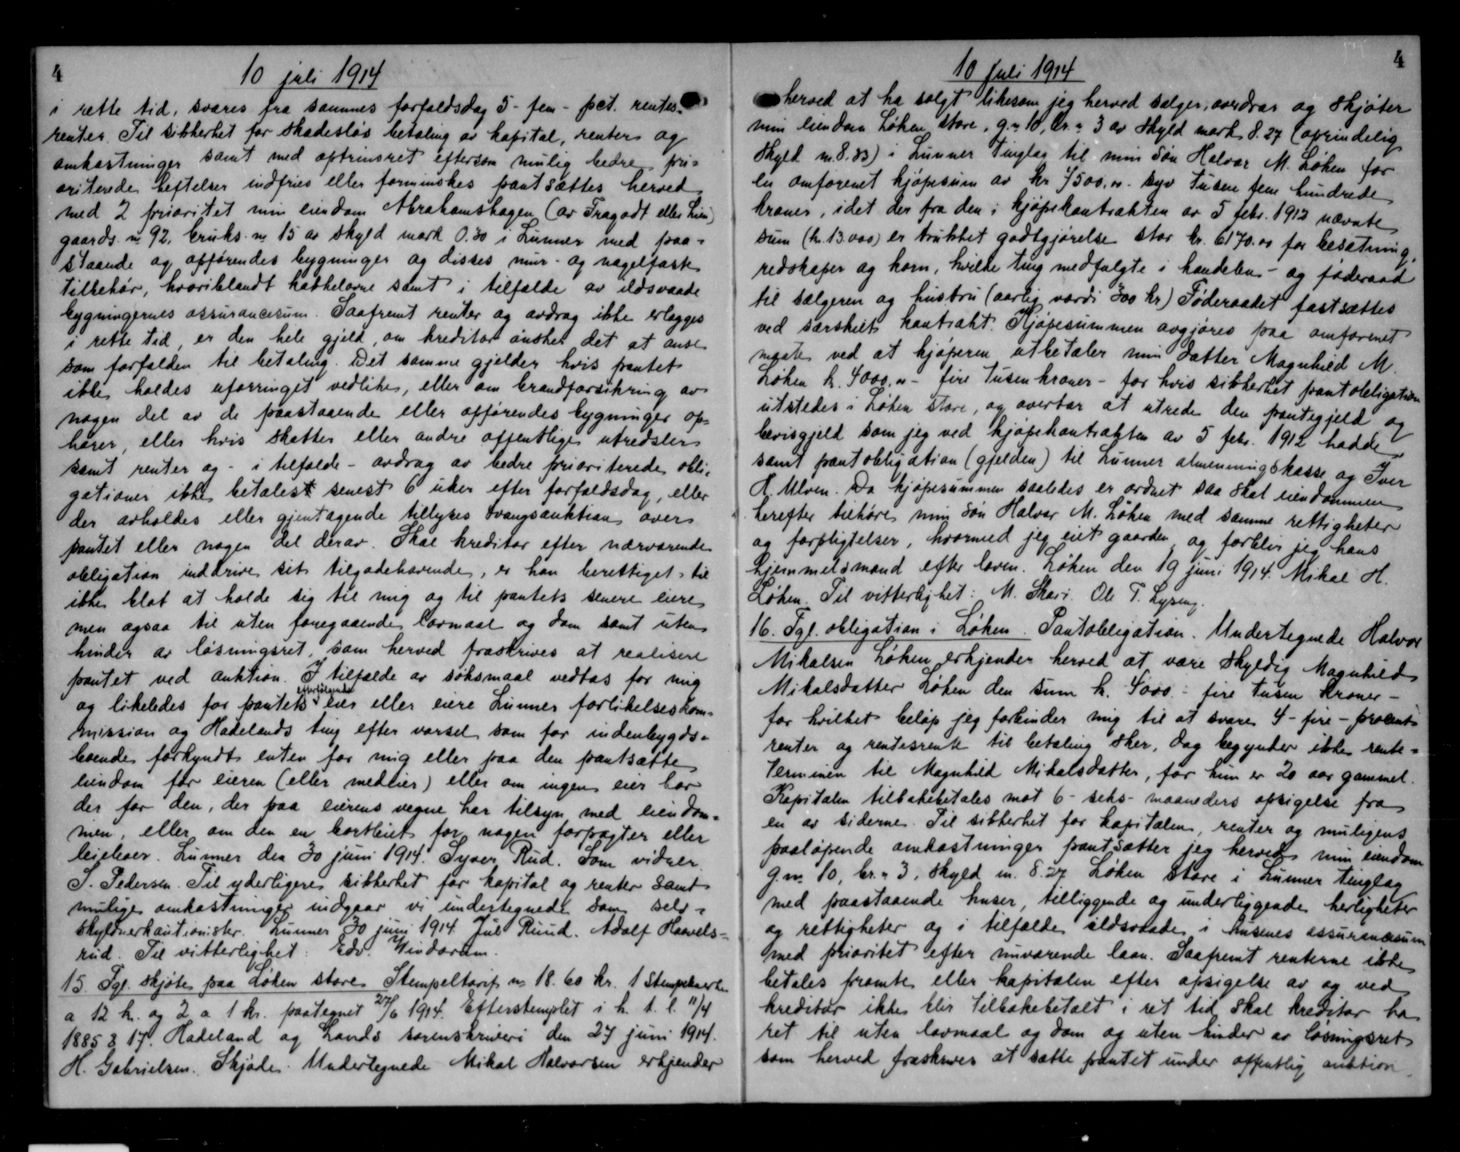 4
10 juli 1914
i rette tid, svares fra sammes forfaldsdag 5 - fem - pct. rentes-
renter. Til sikkerhet for skadesløs betaling av kapital, renter og
omkostninger samt med optrinsret eftersom mulig bedre pri-
oriterede heftelser indfries eller forminskes pantsættes herved
med 2 prioritet min eiendom Abrahamshagen (av Tragodt eller Lien)
gaards no 92, bruks no 15 av skyld mark 0.30 i Lunner med paa-
staaende og opførendes bygninger og disses mur- og nagelfaste
tilbehør, hvoriblandt kakkelovne samt i tilfælde av ildsvaade
bygningernes assurancesum. Saafremt renter og avdrag ikke erlægges
i rette tid, er den hele gjeld, om kreditor ønsker det at anse
som forfalden til betaling. Det samme gjelder hvis pantet
ikke holdes uforringet vedlike, eller om brandforsikring av
nogen del av de paastaaende eller opførendes bygninger op-
hører, eller hvis skatter eller andre offentlige utredsler
samt renter og - i tilfælde - avdrag av bedre prioriterede obli-
gationer ikke betales senest 6 uker efter forfaldsdag, eller
der avholdes eller gjentagende tillyses tvangsauktion over
pantet eller nogen del derav. Skal kreditor efter nærværende
obligation inddrive sit tilgodehavende, er han berettiget til
ikke blot at holde sig til mig og til pantets senere eiere
men ogsaa til uten foregaaende lovmaal og dom samt uten
hinder av løsningsret, som herved fraskrives at realisere
pantet ved auktion. I tilfælde av søksmaal vedtas for mig
og likeledes for pantets efterfølgende eier eller eiere Lunner forlikelseskom-
mission og Hadelands ting efter varsel som for indenbygds-
boende forkyndt enten for mig eller paa den pantsatte
eiendom for eieren (eller medeier) eller om ingen eier bor
der for den, der paa eierens vegne har tilsyn med eiendom-
men, eller om den er bortleiet for nogen forpagter eller
leieboer. Lunner den 30 juni 1914. Syver Rud. Som vidner
S. Pedersen. Til yderligere sikkerhet for kapital og renter samt
mulige omkostninger indgaar vi undertegnede som selv-
skyldnerkautionister. Lunner 30 juni 1914. Jul Ruud. Adolf Haavels-
rud. Til vitterlighet: Edv. Windorum.
15. Tgl. skjøte paa Løken store. Stempeltarif no 18. 60 kr. 1 Stempelmerke
a 12 kr. og 2 a 1 kr. paategnet 27/6 1914. Efterstemplet i h. t. l. 11/4
1885 § 17. Hadeland og Lands sorenskriveri den 27 juni 1914.
H. Gabrielsen. Skjøde. Undertegnede Mikal Halvorsen erkjender
4
10 juli 1914
herved at ha solgt likesom jeg herved sælger, avdrar og skjøter
min eiendom Løken store, g.no 10, br.no 3 av skyld mark 8.27 (oprindelig
skyld m. 8.83) i Lunner tinglag til min søn Halvor M. Løken for
en omforenet kjøpesum av kr 7500.00 syv tusen fem hundrede
kroner, idet der fra den i kjøpekontrakten av 5 febr. 1912 nævnte
sum (kr. 13.000) er trukket godtgjørelse stor kr. 6170.00 for besætning,
redskaper og korn, hvilke ting medfulgte i handelen - og føderaad
til sælgeren og hustru (aarlig værdi 300 kr) Føderaadet fastsættes
ved særskilt kontrakt. Kjøpesummen avgjøres paa omforenet
maate ved at kjøperen utbetaler min datter Magnhild M.
Løken kr. 4000.00 - fire tusen kroner - for hvis sikkerhet pantobligation
utstedes i Løken store, og overtar at utrede den pantegjeld og
bevisgjeld som jeg ved kjøpekontrakten av 5 febr. 1912 hadde
samt pantobligation (gjelden) til Lunner almenningskasse og Iver
H. Ulven. Da kjøpesummen saaledes er ordnet saa skal eiendommen
herefter tilhøre min søn Halvor M. Løken med samme rettigheter
og forpligtelser, hvormed jeg eiet gaarden, og forblir jeg hans
hjemmelsmand efter loven. Løken den 19 juni 1914. Mikal H.
Løken. Til vitterlighet: M. Skari. Ole T. Lysing.
16. Tgl. obligation i Løken. Pantobligation. Undertegnede Halvor
Mikalsen Løken erkjender herved at være skyldig Magnhild
Mikalsdatter Løken den sum kr. 4000.- fire tusen kroner -
for hvilket beløp jeg forbinder mig til at svare 4 - fire - procent
renter og rentesrente til betaling sker, dog begynder ikke rente-
terminen til Magnhild Mikalsdatter, før hun er 20 aar gammel.
Kapitalen tilbakebetales mot 6 - seks - maaneders opsigelse fra
en av siderne. Til sikkerhet for kapitalen, renter og muligens
paaløpende omkostninger pantsætter jeg herved min eiendom
g.no 10, br.no 3, skyld m. 8.27 Løken store i Lunner tinglag
med paastaaende huser, tilliggende og underliggende herligheter
og rettigheter og i tilfælde ildsvaade i husenes assurancesum
med prioritet efter nuværende laan. Saafremt renterne ikke
betales promte eller kapitalen efter opsigelse av og ved
kreditor ikke blir tilbakebetalt i ret tid skal kreditor ha
ret til uten lovmaal og dom og uten hinder av løsningsret
som herved fraskrives at sætte pantet under offentlig auktion.